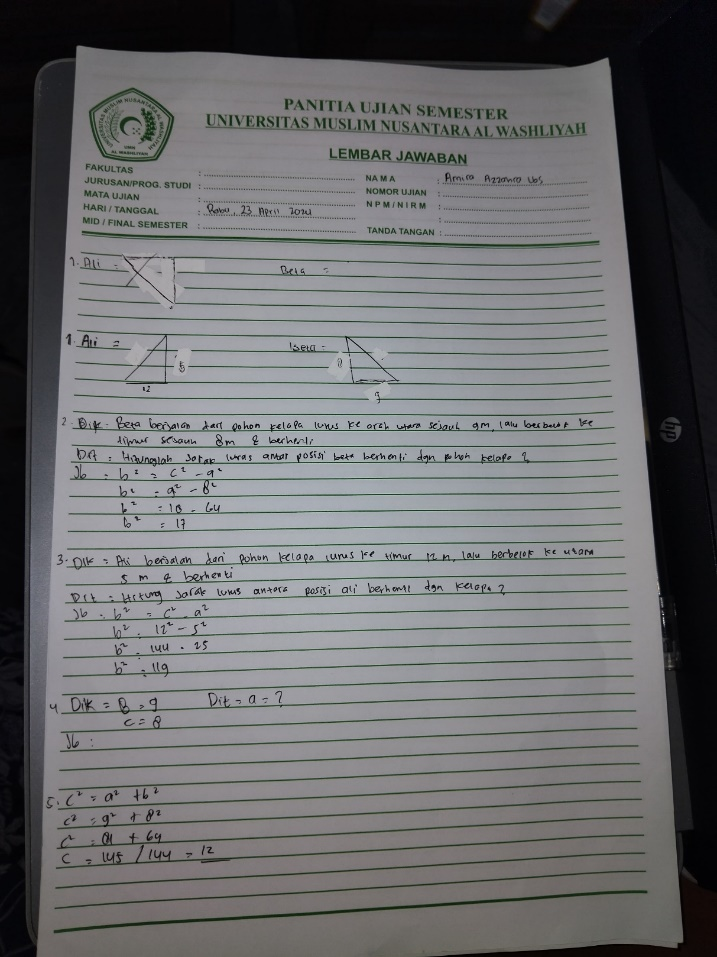 PANITIA UJIAN SEMESTER
UNIVERSITAS MUSLIM NUSANTARA AL WASHLIYAH
LEMBAR JAWABAN
UNIVERSITAS MUSLIM NUSANTARA AL WASHLIYAH
UMN
AL WASHLIYAH
FAKULTAS :
JURUSAN/PROG. STUDI :
MATA UJIAN :
HARI / TANGGAL : Rabu, 23 April
MID / FINAL SEMESTER :
NAMA : Amira Azzahra Lbs
NOMOR UJIAN :
NPM/NIRM :
TANDA TANGAN :
1. Ali = Beta =
1. Ali = 5 12 Beta = 8 9
2. Dik = Beta berjalan dari pohon kelapa lurus ke arah utara sejauh 9m, lalu berbelok ke
timur sejauh 8m & berhenti
Dit = Hitunglah jarak lurus antar posisi beta berhenti dgn pohon kelapa ?
Jb = b² = c² - a²
b² = 9² - 8²
b² = 18 - 64
b² = 17
3. Dik = Ali berjalan dari pohon kelapa lurus ke timur 12 m, lalu berbelok ke utara
5 m & berhenti
Dit = Hitung jarak lurus antara posisi ali berhenti dgn kelapa ?
Jb = b² = c² - a²
b² = 12² - 5²
b² = 144 - 25
b² = 119
4. Dik = B = 9 Dit = a = ?
c = 8
Jb :
5. c² = a² + b²
c² = 9² + 8²
c² = 81 + 64
c = 145 / 144 = 12
hp